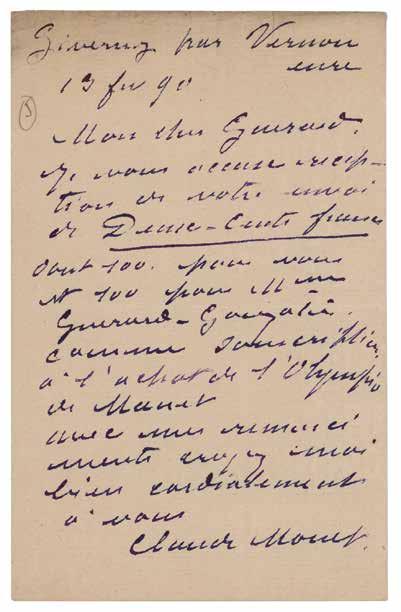 Giverny par Vernon
eure
13 fev 90
5
Mon cher Guerard,
Je vous accuse récep-
tion de votre envoi
de Deux-Cents francs
dont 100. pour vous
et 100 pour Mme
Guerard-Gonzalès
comme souscription
à l'achat de l'Olympia
de Manet
avec mes remerci
ments croyez moi
bien cordialement
à vous
Claude Monet.